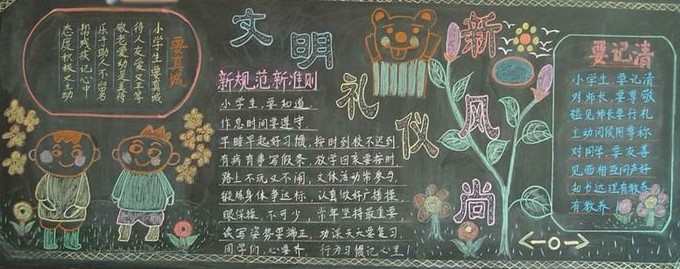 文明礼仪新风尚
要真诚
小学生 要真诚
待朋友 爱又平等
敬老爱幼是美德
乐于助人不留名
帮残疾记心中
态度积极又主动
新规范新准则
小学生,要知道,
作息时间要遵守
早睡早起好习惯,按时到校不迟到
有病有事写假条,放学回家要按时
路上不玩又不闹,文体活动常参与
锻炼身体争达标,认真做好广播操
眼保操,不可少,常年坚持最重要
读写姿势要端正,功课天天要复习
同学们,心要齐,行为习惯记心里!
要记清
小学生,要记清
对师长,要尊敬
碰见师长要行礼
主动问候用尊称
对同学,要友善
见面相互问声好
如步迟理有教养
有教养